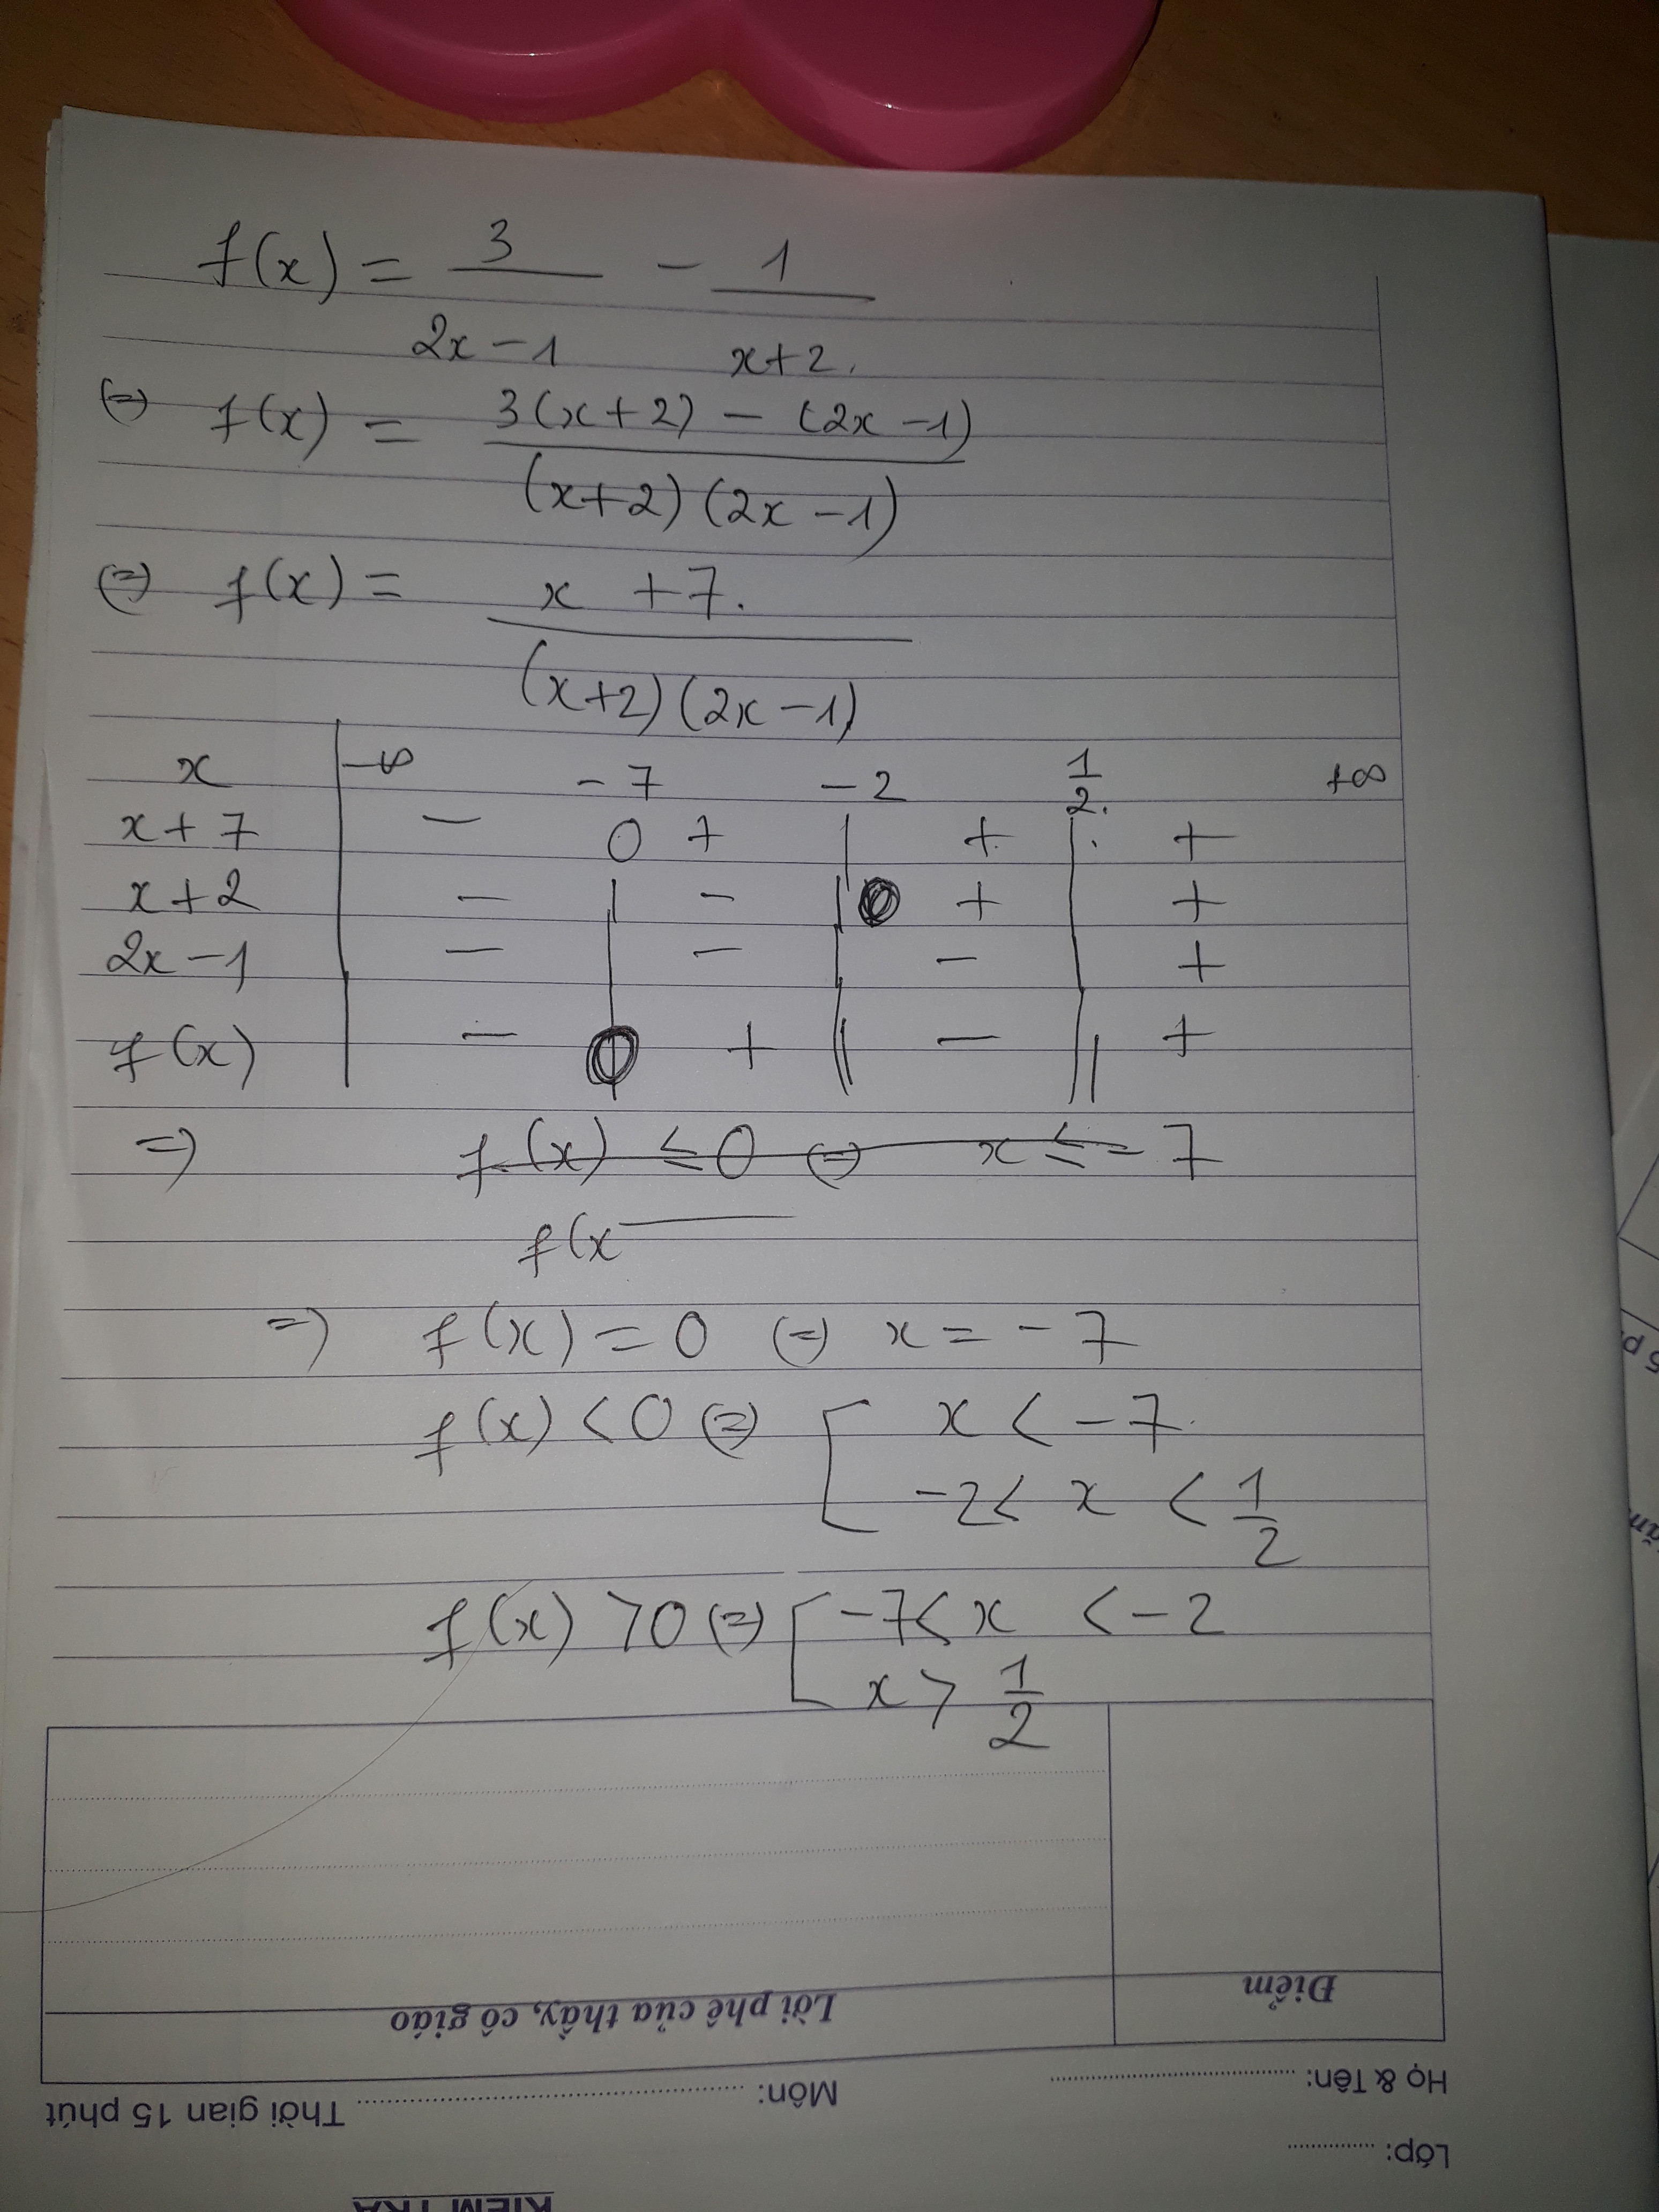 f(x) = 3/(2x-1) - 1/(x+2)
(=) f(x) = (3(x+2) - (2x-1))/((x+2)(2x-1))
(=) f(x) = (x+7)/((x+2)(2x-1))
x | -∞ -7 -2 1/2 +∞
x+7 | - 0 + | + | +
x+2 | - | - | 0 + | +
2x-1 | - | - | - | +
f(x) | - 0 + || - || +
=> f(x) ≤ 0 (=) x ≤ -7
f(x
=> f(x) = 0 (=) x = -7
f(x) < 0 (=) [ x < -7
-2 < x < 1/2
f(x) > 0 (=) [ -7 < x < -2
x > 1/2
Lời phê của thầy, cô giáo
Điểm
Họ & Tên:
Môn:
Thời gian 15 phút
Lớp:
KIỂM TRA